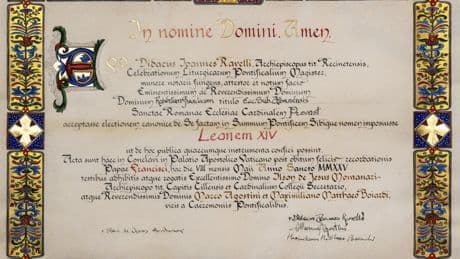 In nomine Domini. Amen
Ego Didacus Ioannes Ravelli, Archiepiscopus tit. Recinetensis,
Celebrationum Liturgicarum Pontificalium Magister,
munere notarii fungens, attestor et notum facio
Eminentissimum ac Reverendissimum Dominum
Dominum titulo
Sanctae Romanae Ecclesiae Cardinalem Prevost
acceptasse electionem canonice de Se factam in Summum Pontificem Sibique nomen imposuisse
Leonem XIV
ut de hoc publica quaecumque instrumenta confici possint.
Acta sunt haec in Conclavi in Palatio Apostolico Vaticano post obitum felicis recordationis
Papae Francisci, hac die VIII mensis Maii Anno Sancto MMXXV
testibus adhibitis atque rogatis Excellentissimo Domino Ilson de Jesus Montanari
Archiepiscopo tit. Capitis Cillensis et Cardinalium Collegii Secretario,
atque Reverendissimis Dominis Marco Agostini et Maximiliano Matthaeo Boiardi,
viris a Caeremoniis Pontificalibus.